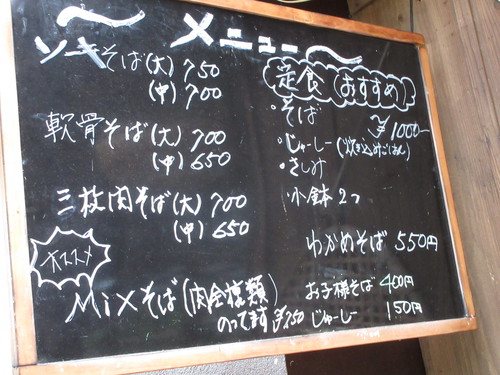 メニュー
ソーキそば(大) 750
(中) 700
軟骨そば(大) 700
(中) 650
三枚肉そば(大) 700
(中) 650
オススメ
Mixそば(肉全種類)
のってます ¥750
定食(おすすめ)
・そば
¥1000-
・じゅーしー(炊き込みごはん)
・さしみ
・小鉢2つ
わかめそば 550円
お子様そば 400円
じゅーしー 150円